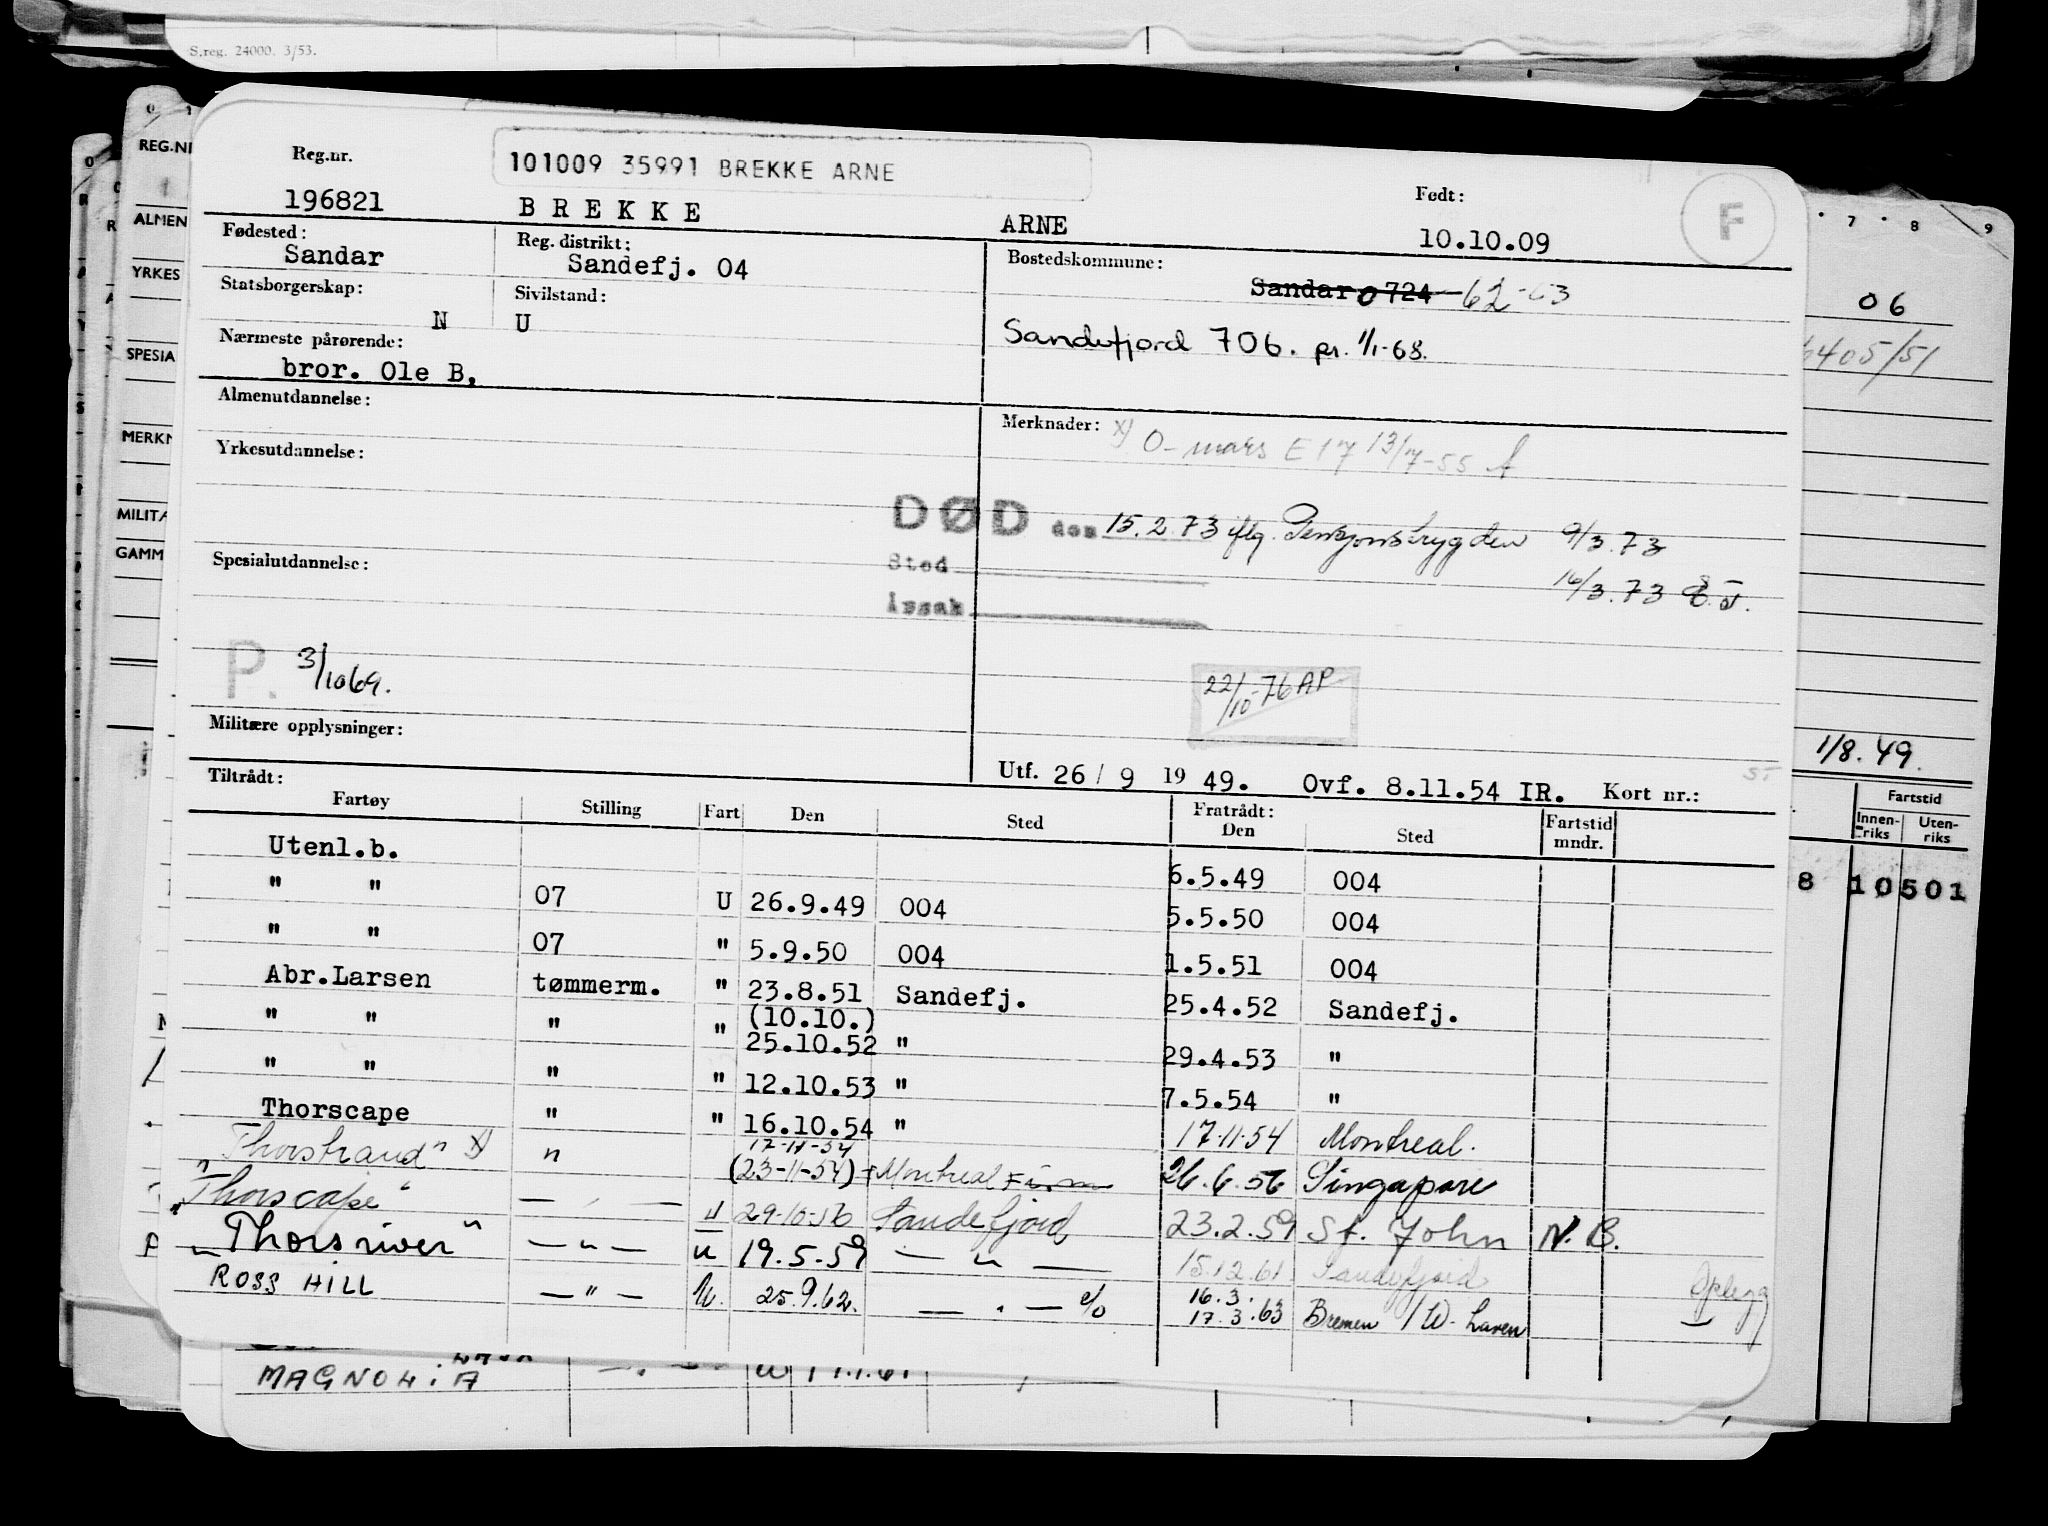 S.reg. 24000. 3/53.
Reg.nr. 101009 35991 BREKKE ARNE Født:
196821 BREKKE ARNE 10.10.09 F
Fødested: Reg. distrikt: Bostedskommune:
Sandar Sandefj. 04 Sandar 0724 62-63
Statsborgerskap: Sivilstand:
N U
Sandefjord 706. pr. 1/1-68.
Nærmeste pårørende:
bror. Ole B,
Almenutdannelse: Merknader: x) O-mars E 17 13/7-55
Yrkesutdannelse:
DØD den 15.2.73 iflg. Pensjonstrygden 9/3.73
Sted 16/3.73
Årsak
Spesialutdannelse:
P. 3/1069.
22/10-76 AP
Militære opplysninger:
Utf. 26/9 1949. Ovf. 8.11.54 IR. Kort nr.:
Tiltrådt: Fratrådt:
Fartøy Stilling Fart Den Sted Den Sted Fartstid mndr.
Utenl.b. 6.5.49 004
" " 07 U 26.9.49 004 5.5.50 004
" " 07 " 5.9.50 004 1.5.51 004
Abr.Larsen tømmerm. " 23.8.51 Sandefj. 25.4.52 Sandefj.
" " " " (10.10.) 25.10.52 " 29.4.53 "
" " " " 12.10.53 " 7.5.54 "
Thorscape " " 16.10.54 " 17.11.54 Montreal.
Thorstrand" x) " 17-11-54 (23-11-54) Montreal 26.6.56 Singapore
"Thorscape" — " — " 29-10-56 Sandefjord 23.2.59 St. John N.B.
"Thorsriver" — " — u 19.5.59 — " — 15.12.61. Sandefjord Opplegg
ROSS HILL — " — U. 25.9.62. — " — 16.3. 17.3.63 Bremen / W. haven
MAGNOLIA
REG.NR
ALMEN
YRKES
SPESIA
MERKN
MILITÆ
GAMM
7 8 9
06
6405/51
1/8.49.
Fartstid
Innenriks Utenriks
8 10501